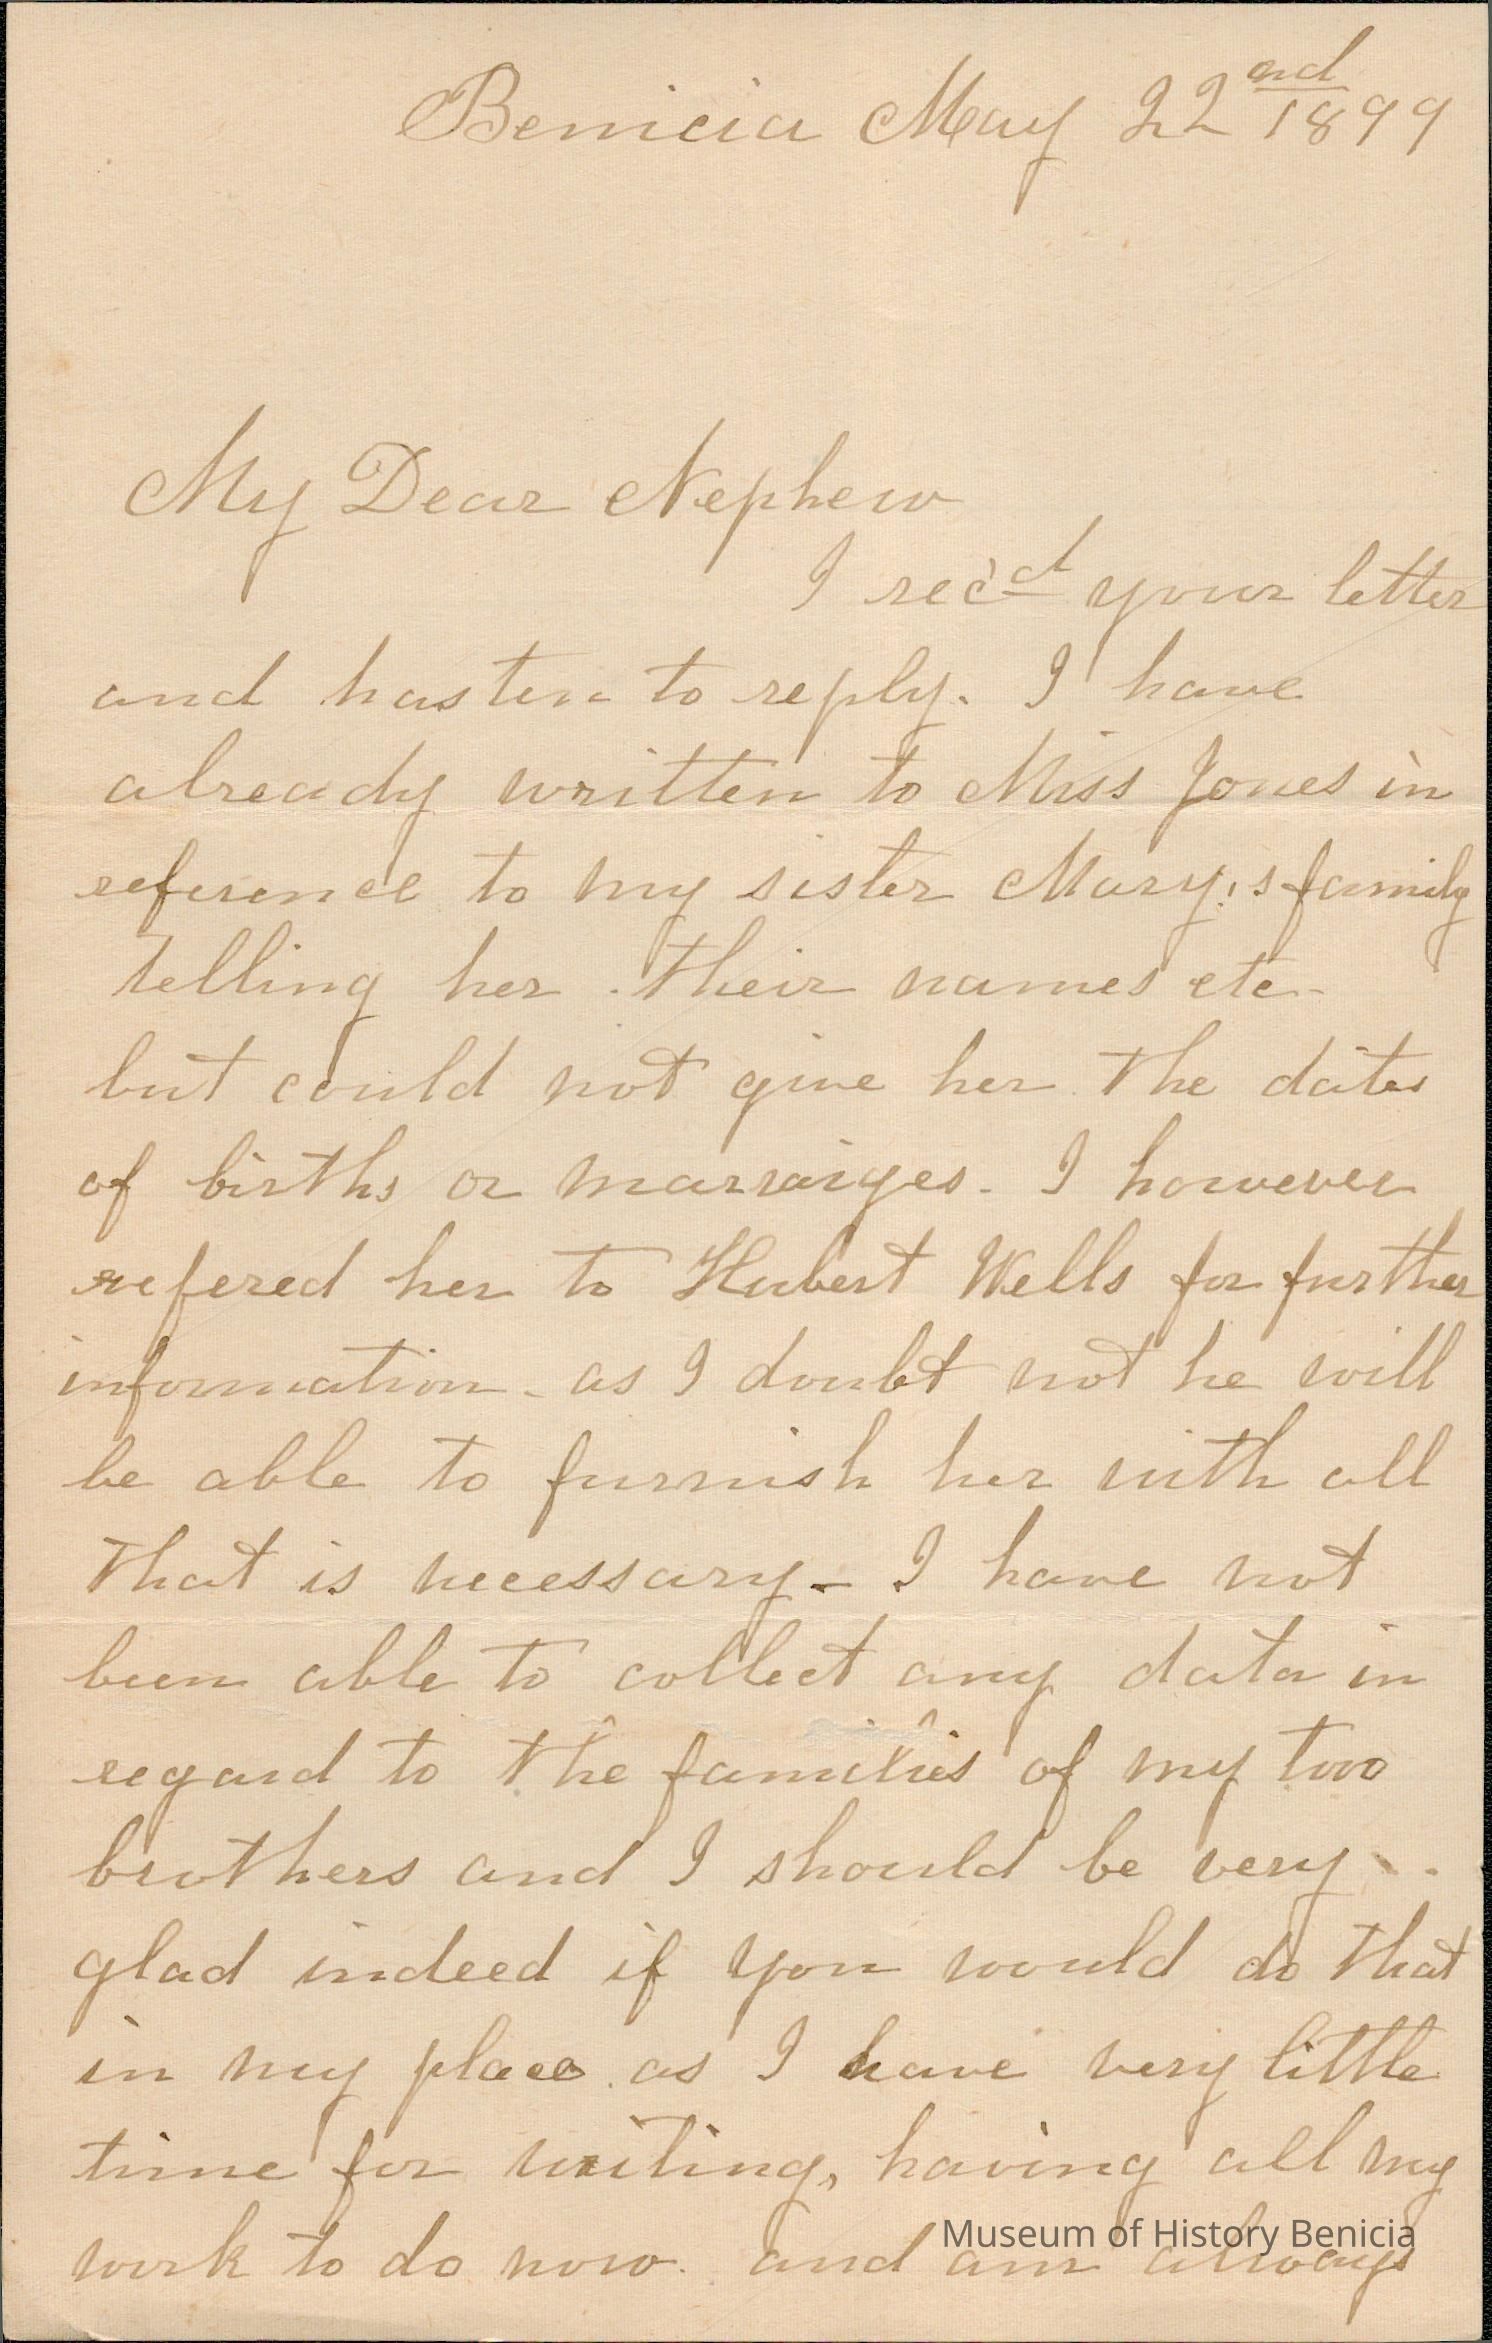 Benicia May 22nd 1899
My Dear Nephew
I rec'd your letter
and hasten to reply. I have
already written to Miss Jones in
reference to my sister Mary's family
telling her their names etc-
but could not give her the dates
of births or marraiges. I however
refered her to Hubert Wells for further
information - as I doubt not he will
be able to furnish her with all
that is necessary - I have not
been able to collect any data in
regard to the families of my two
brothers and I should be very
glad indeed if you would do that
in my place as I have very little
time for writing, having all my
work to do now. and am always
Museum of History Benicia